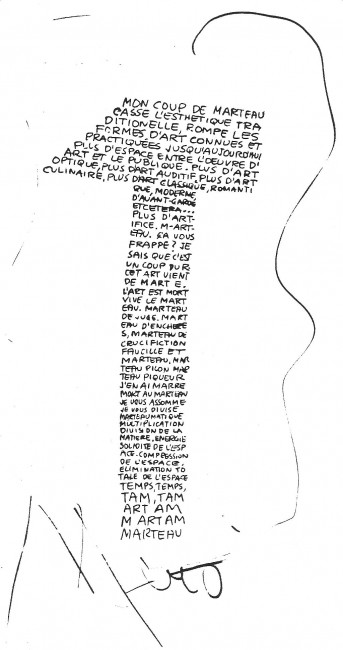 MON COUP DE MARTEAU
CASSE L'ESTHETIQUE TRA
DITIONELLE, ROMPE LES
FORMES D'ART CONNUES ET
PRACTIQUÉES JUSQU'AUJOURD'HUI
PLUS D'ESPACE ENTRE L'OEUVRE D'
ART ET LE PUBLIQUE. PLUS D'ART
OPTIQUE, PLUS D'ART AUDITIF, PLUS D'ART
CULINAIRE, PLUS D'ART CLASSIQUE, ROMANTI
QUE, MODERNE,
D'AVANT-GARDE
ETCETERA...
PLUS D'ART-
IFICE. M-ART-
EAU. ÇA VOUS
FRAPPE? JE
SAIS QUE C'EST
UN COUP DUR.
CET ART VIENT
DE MART E.
L'ART EST MORT
VIVE LE MART
EAU. MARTEAU
DE JUGE. MART
EAU D'ENCHERE
S, MARTEAU DE
CRUCIFICTION
FAUCILLE ET
MARTEAU, MAR
TEAU PILON MAR
TEAU PIQUEUR
J'EN AI MARRE
MORT AU MARTEAU
JE VOUS ASSOMME
JE VOUS DIVISE
MARTEAUMATIQUE
MULTIPLICATION
DIVISION DE LA
MATIERE, ENERGIE
SOLIDITE DE L'ESP
ACE. COMPRESSION
DE L'ESPACE.
ELIMINATION TO
TALE DE L'ESPACE
TEMPS, TEMPS,
TAM, TAM
ART AM
M ART AM
MARTEAU